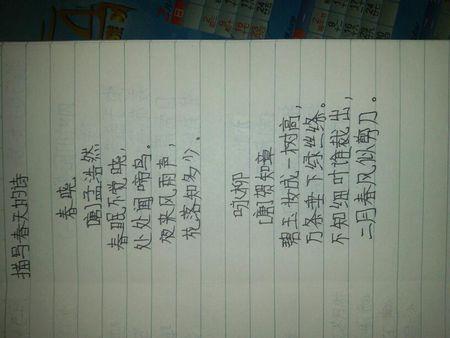 描写春天的诗
春晓
[唐]孟浩然
春眠不觉晓，
处处闻啼鸟。
夜来风雨声，
花落知多少。
咏柳
[唐]贺知章
碧玉妆成一树高，
万条垂下绿丝绦。
不知细叶谁裁出，
二月春风似剪刀。